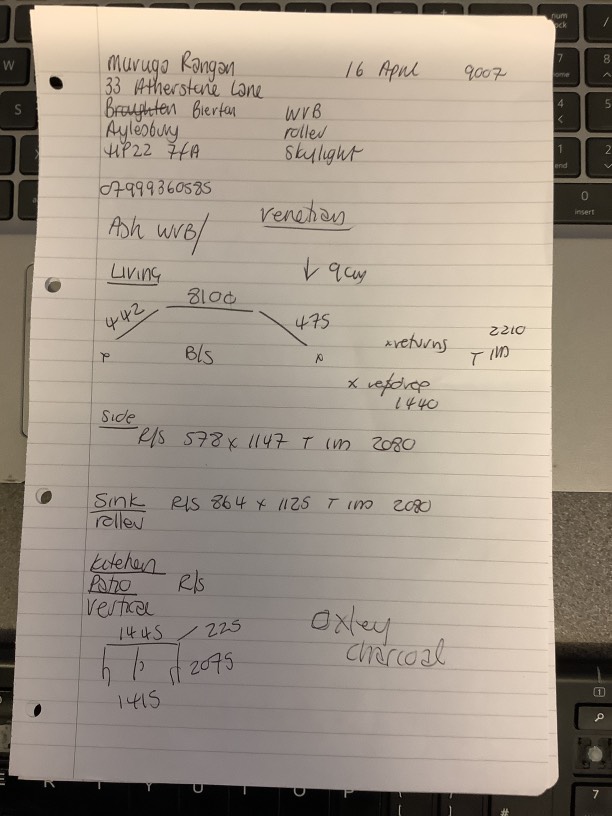 Muruga Rangan 16 April 9007
33 Atherstone Lane
Broughton Bierton WVB
Aylesbury roller
HP22 7fA Skylight
07999360585
Ash WVB/ venetian
Living ↓ 9cm
8100
442 475
B/S x returns T 1m 2210
x
1440
Side
R/S 578 x 1147 T 1m 2080
Sink R/S 864 x 1125 T 1m 2080
roller
Kitchen
Patio R/s
Vertical
1445 / 225
2075
1415
Oxley
charcoal